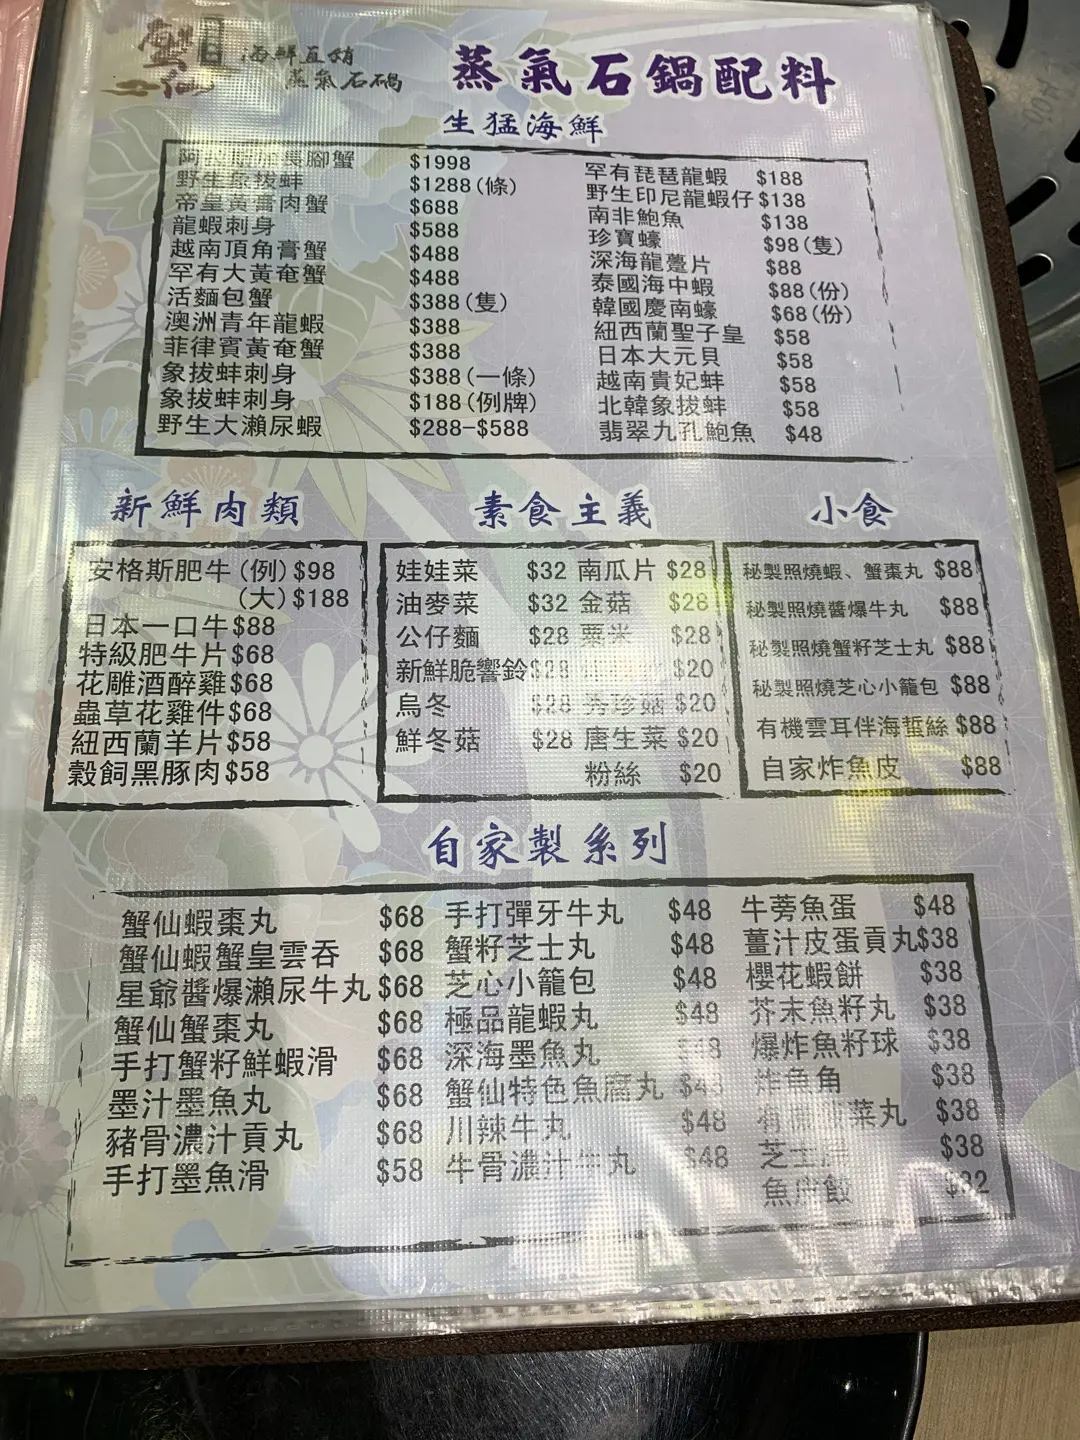 蟹仙
海鮮直銷
蒸氣石鍋
蒸氣石鍋配料
生猛海鮮
腳蟹 $1998
野生象拔蚌 $1288(條)
帝皇黃膏肉蟹 $688
龍蝦刺身 $588
越南頂角膏蟹 $488
罕有大黃奄蟹 $488
活麵包蟹 $388(隻)
澳洲青年龍蝦 $388
菲律賓黃奄蟹 $388
象拔蚌刺身 $388(一條)
象拔蚌刺身 $188(例牌)
野生大瀨尿蝦 $288-$588
罕有琵琶龍蝦 $188
野生印尼龍蝦仔 $138
南非鮑魚 $138
珍寶蠔 $98(隻)
深海龍躉片 $88
泰國海中蝦 $88(份)
韓國慶南蠔 $68(份)
紐西蘭聖子皇 $58
日本大元貝 $58
越南貴妃蚌 $58
北韓象拔蚌 $58
翡翠九孔鮑魚 $48
新鮮肉類
安格斯肥牛(例)$98
(大)$188
日本一口牛$88
特級肥牛片$68
花雕酒醉雞$68
蟲草花雞件$68
紐西蘭羊片$58
穀飼黑豚肉$58
素食主義
娃娃菜 $32
油麥菜 $32
公仔麵 $28
新鮮脆響鈴$28
烏冬 $28
鮮冬菇 $28
南瓜片 $28
金菇 $28
粟米 $28
$20
秀珍菇 $20
唐生菜 $20
粉絲 $20
小食
秘製照燒蝦、蟹棗丸 $88
秘製照燒醬爆牛丸 $88
秘製照燒蟹籽芝士丸 $88
秘製照燒芝心小籠包 $88
有機雲耳伴海蜇絲 $88
自家炸魚皮 $88
自家製系列
蟹仙蝦棗丸 $68
蟹仙蝦蟹皇雲吞 $68
星爺醬爆瀨尿牛丸 $68
蟹仙蟹棗丸 $68
手打蟹籽鮮蝦滑 $68
墨汁墨魚丸 $68
豬骨濃汁貢丸 $68
手打墨魚滑 $58
手打彈牙牛丸 $48
蟹籽芝士丸 $48
芝心小籠包 $48
極品龍蝦丸 $48
深海墨魚丸 $48
蟹仙特色魚腐丸 $48
川辣牛丸 $48
牛骨濃汁牛丸 $48
牛蒡魚蛋 $48
薑汁皮蛋貢丸$38
櫻花蝦餅 $38
芥末魚籽丸 $38
爆炸魚籽球 $38
炸魚角 $38
菜丸 $38
芝士 $38
魚皮餃 $32